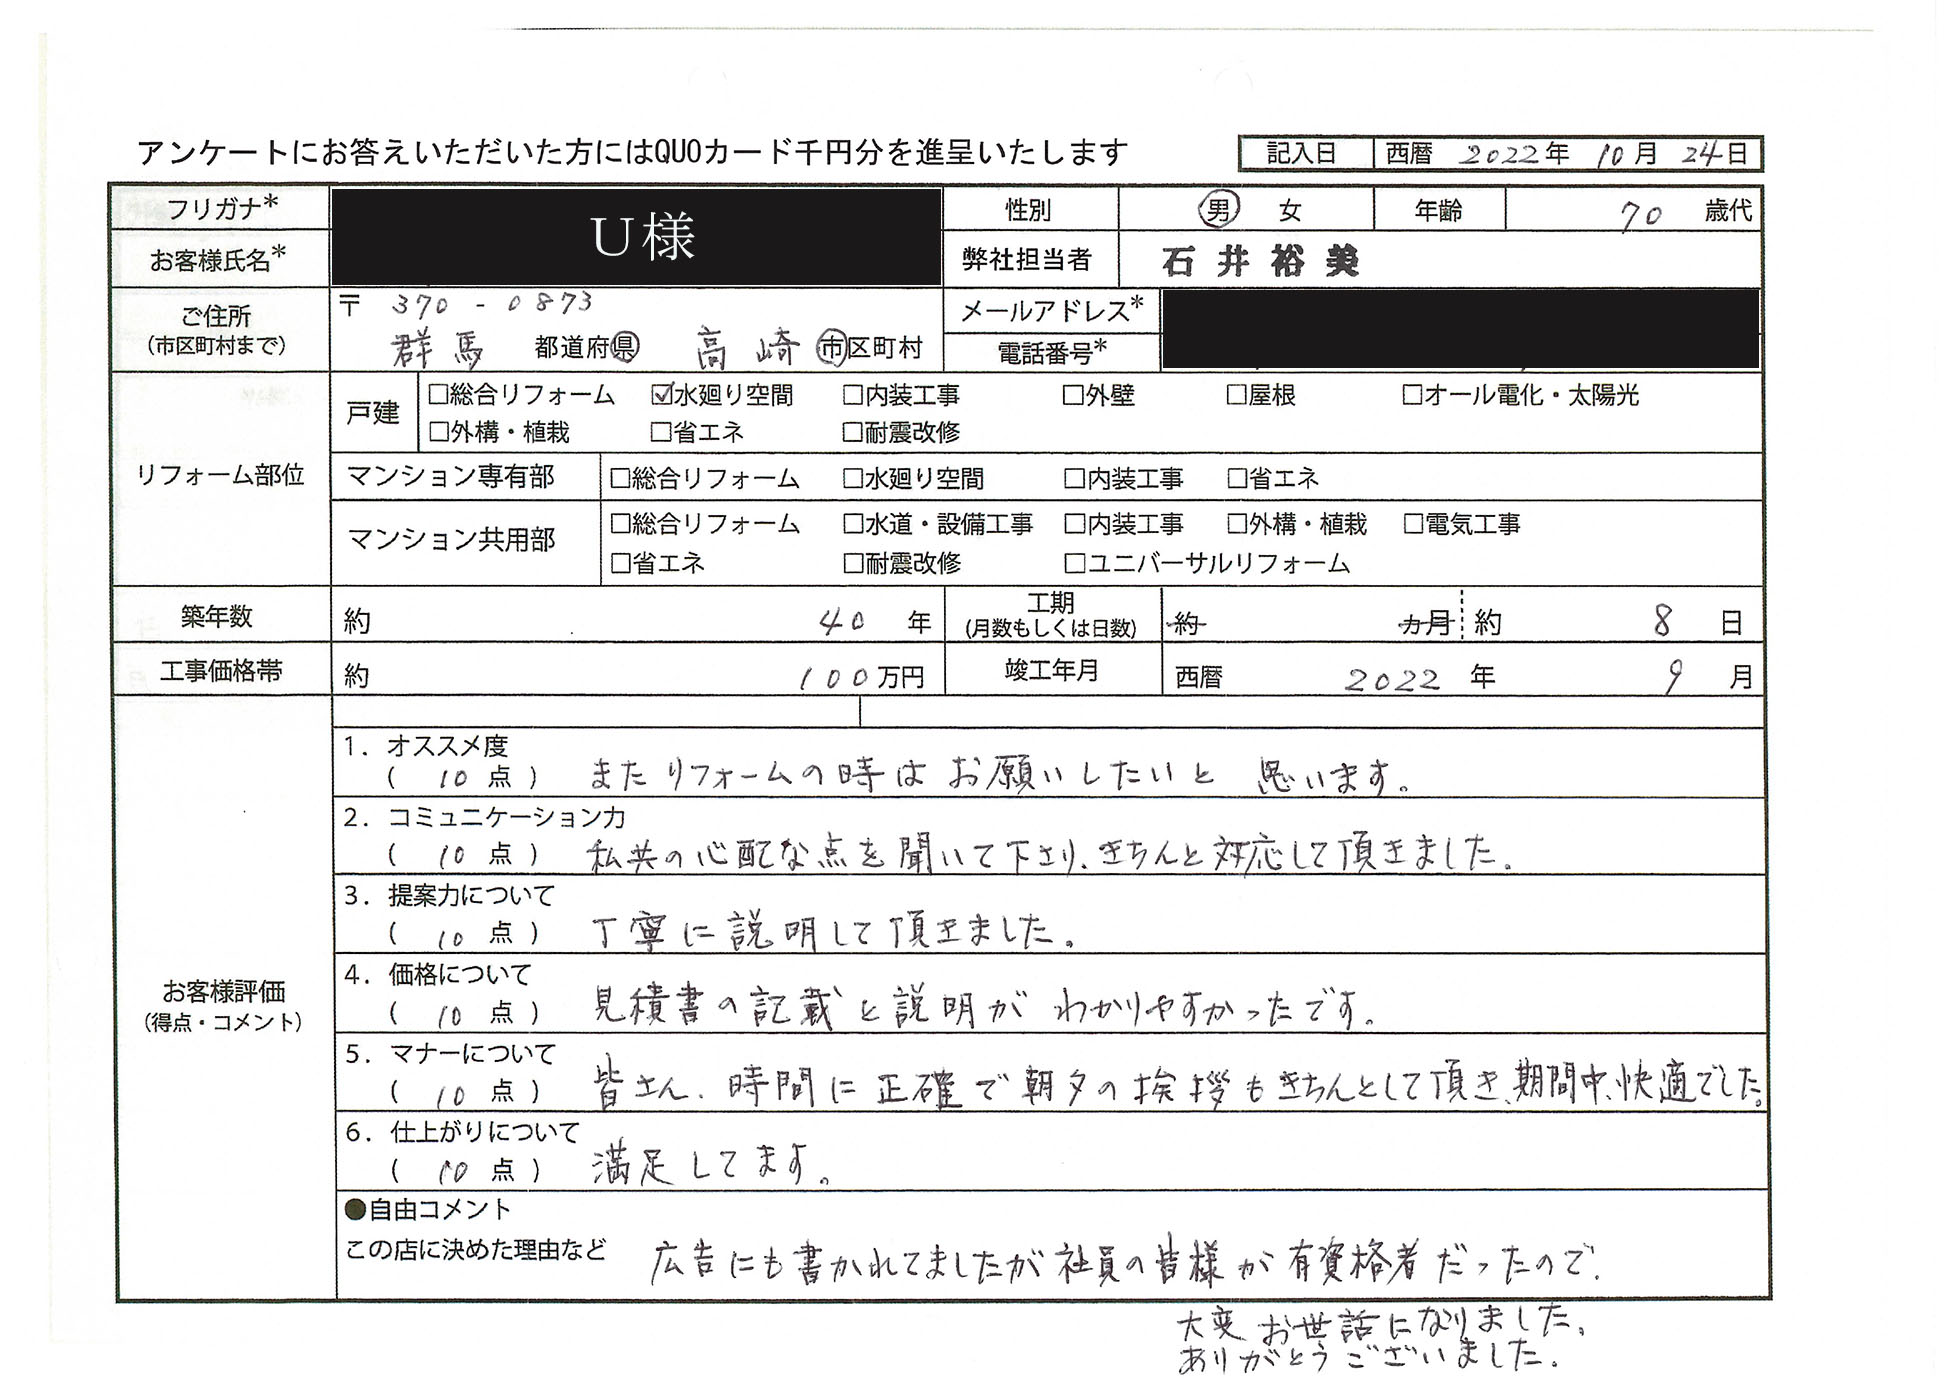 アンケートにお答えいただいた方にはQUOカード千円分を進呈いたします
記入日 西暦 2022年 10月 24日
フリガナ* U様 性別 男 女 年齢 70 歳代
お客様氏名* 弊社担当者 石井裕美
ご住所 〒 370-0873 メールアドレス*
(市区町村まで) 群馬 都道府県 高崎 市区町村 電話番号*
リフォーム部位
戸建 □総合リフォーム ☑水廻り空間 □内装工事 □外壁 □屋根 □オール電化・太陽光
□外構・植栽 □省エネ □耐震改修
マンション専有部 □総合リフォーム □水廻り空間 □内装工事 □省エネ
マンション共用部 □総合リフォーム □水道・設備工事 □内装工事 □外構・植栽 □電気工事
□省エネ □耐震改修 □ユニバーサルリフォーム
築年数 約 40 年 工期 (月数もしくは日数) 約 カ月 約 8 日
工事価格帯 約 100万円 竣工年月 西暦 2022 年 9 月
お客様評価
(得点・コメント)
1. オススメ度
( 10 点 ) またリフォームの時はお願いしたいと思います。
2. コミュニケーション力
( 10 点 ) 私共の心配な点を聞いて下さり、きちんと対応して頂きました。
3. 提案力について
( 10 点 ) 丁寧に説明して頂きました。
4. 価格について
( 10 点 ) 見積書の記載と説明がわかりやすかったです。
5. マナーについて
( 10 点 ) 皆さん、時間に正確で朝夕の挨拶もきちんとして頂き、期間中、快適でした。
6. 仕上がりについて
( 10 点 ) 満足してます。
●自由コメント
この店に決めた理由など 広告にも書かれてましたが社員の皆様が有資格者だったので、
大変お世話になりました。
ありがとうございました。